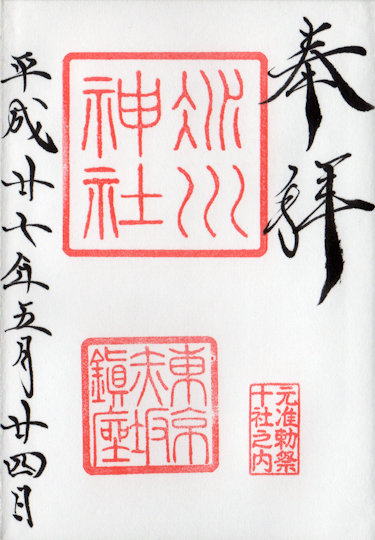 奉拝
氷川
神社
東京
赤坂
鎮座
元准勅祭
十社之内
平成廿七年五月廿四日